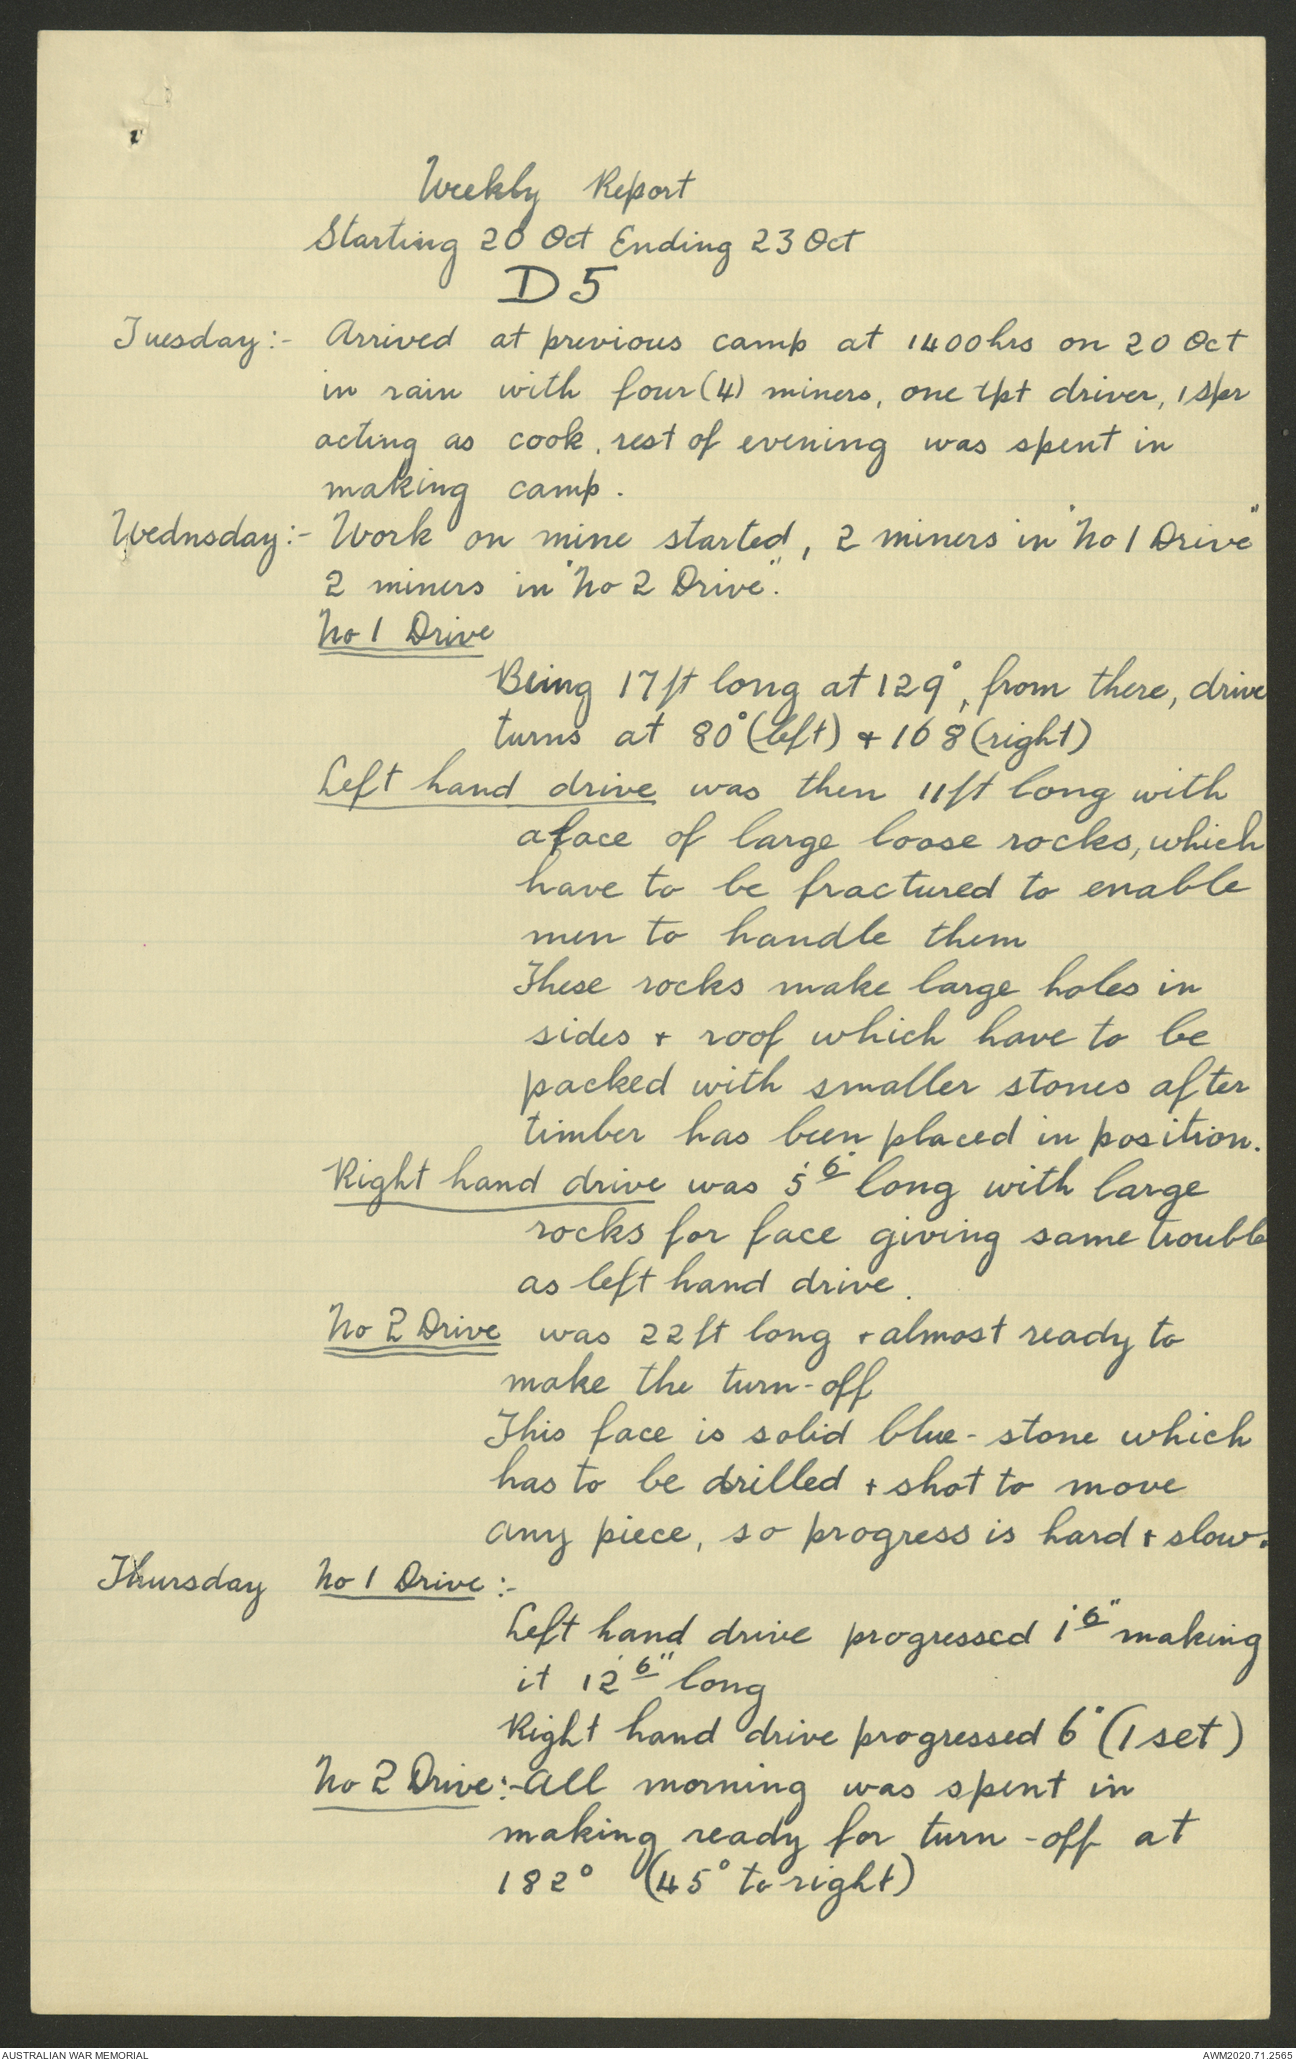 Weekly Report
Starting 20 Oct Ending 23 Oct
D5
Tuesday:- Arrived at previous camp at 1400hrs on 20 Oct
in rain with four (4) miners, one tpt driver, 1 spr
acting as cook, rest of evening was spent in
making camp.
Wednsday:- Work on mine started, 2 miners in "No 1 Drive"
2 miners in "No 2 Drive".
No 1 Drive
Being 17ft long at 129°, from there, drive
turns at 80° (left) + 168 (right)
Left hand drive was then 11ft long with
a face of large loose rocks, which
have to be fractured to enable
men to handle them
These rocks make large holes in
sides + roof which have to be
packed with smaller stones after
timber has been placed in position.
Right hand drive was 5' 6" long with large
rocks for face giving same trouble
as left hand drive.
No 2 Drive was 22ft long + almost ready to
make the turn-off
This face is solid blue-stone which
has to be drilled + shot to move
any piece, so progress is hard + slow.
Thursday No 1 Drive:-
Left hand drive progressed 1' 6" making
it 12' 6" long
Right hand drive progressed 6" (1 set)
No 2 Drive:- All morning was spent in
making ready for turn-off at
182° (45° to right)
AUSTRALIAN WAR MEMORIAL AWM2020.71.2565